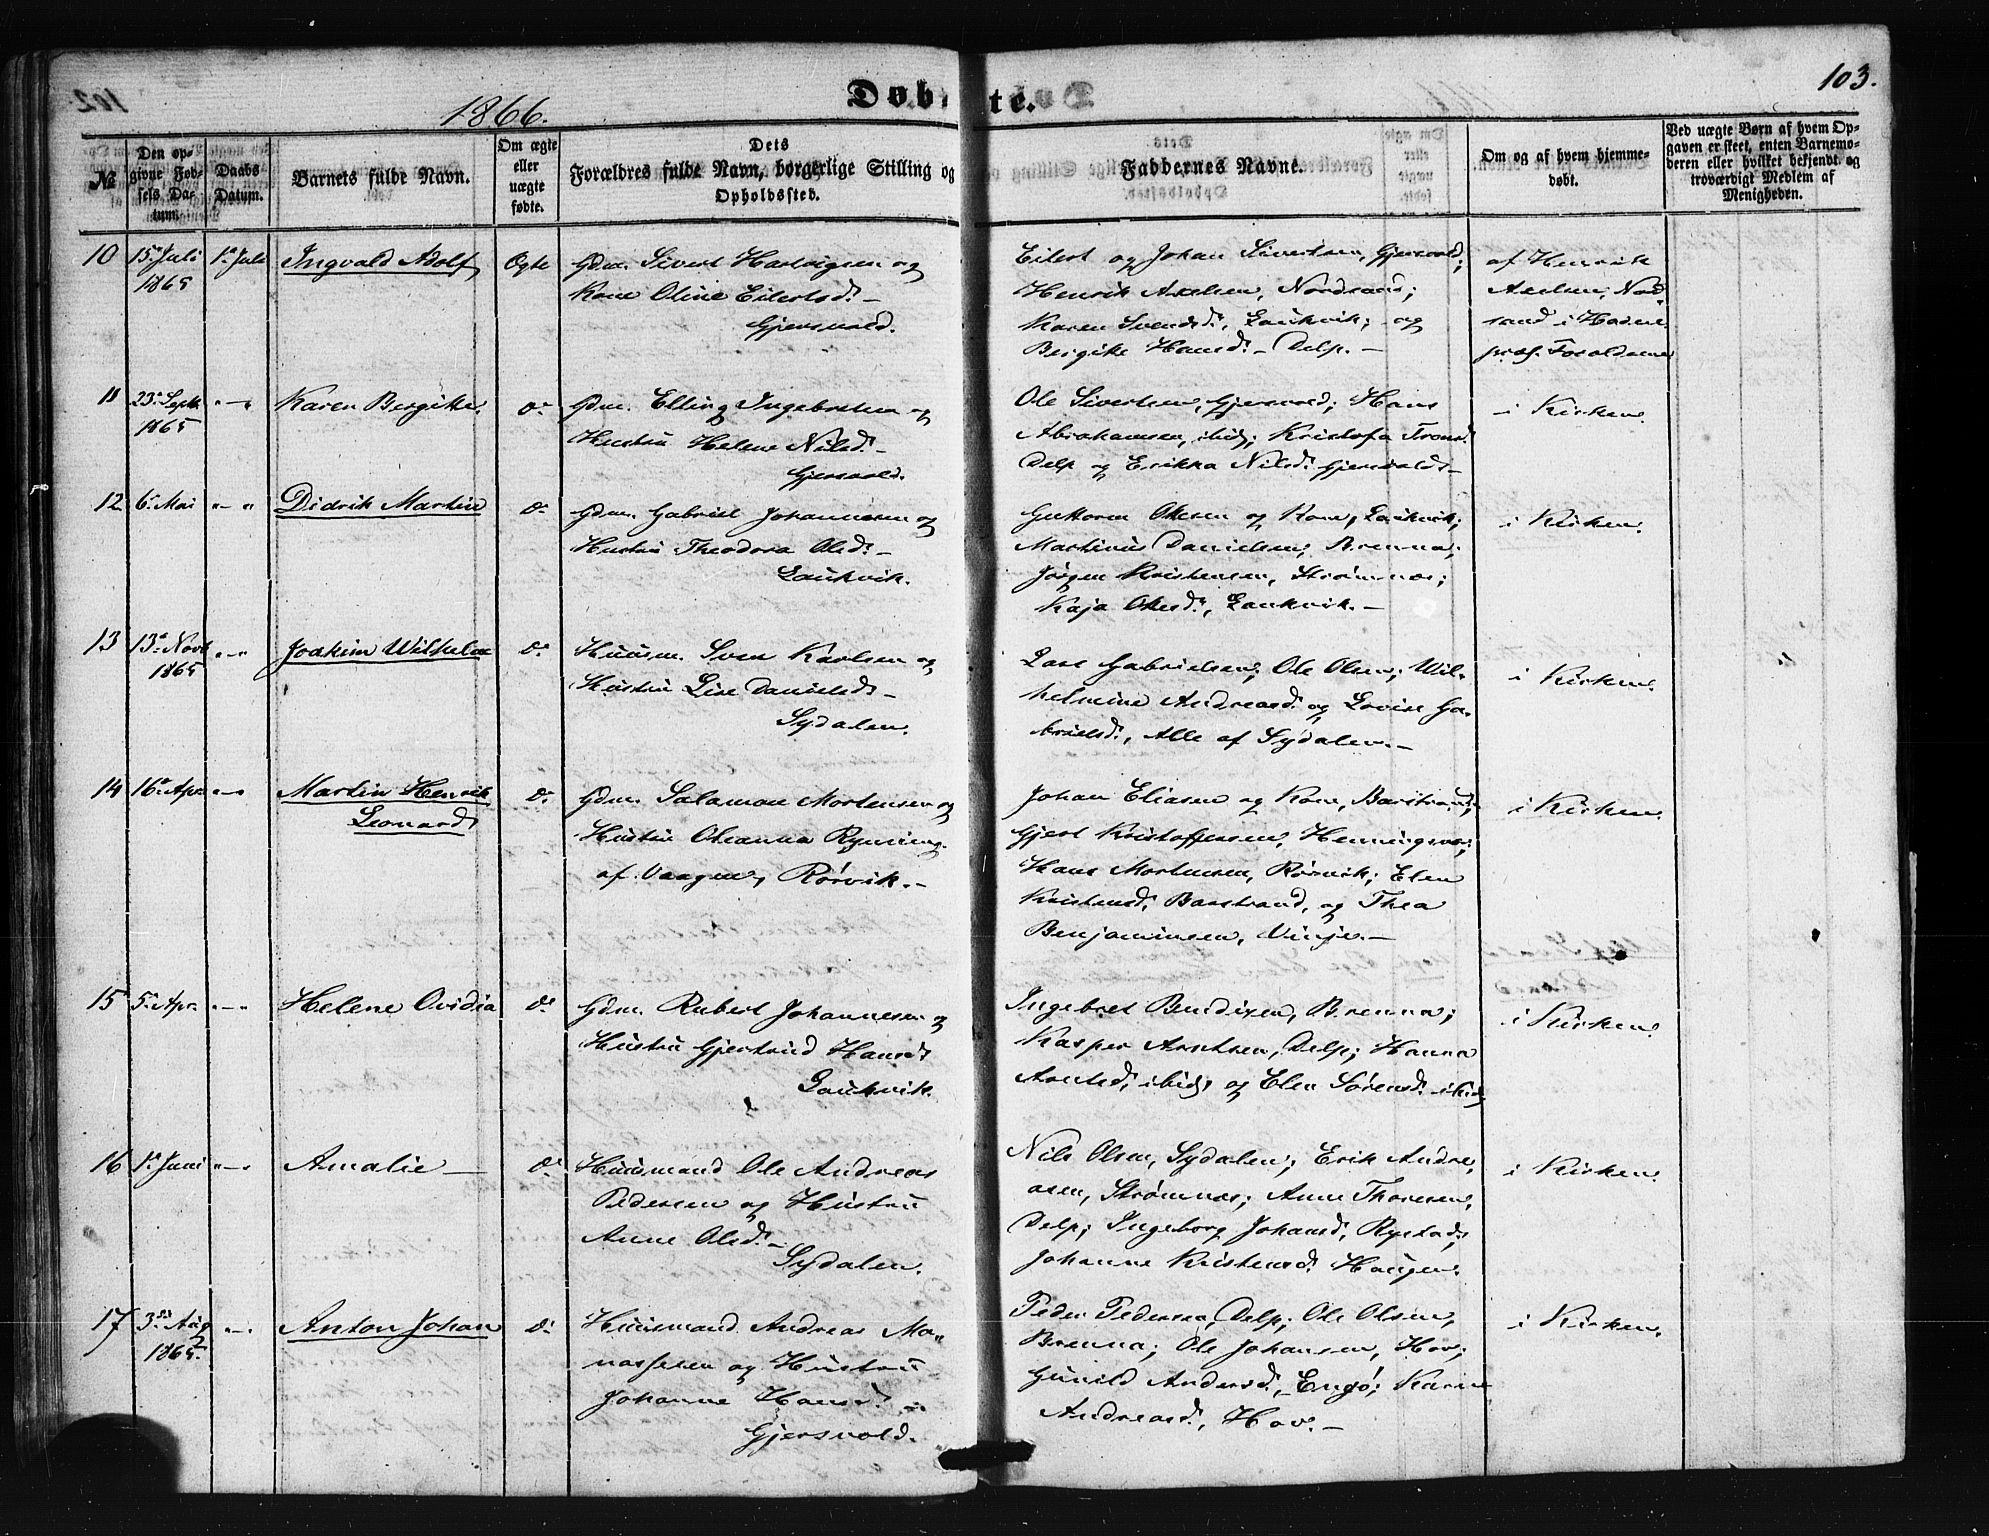 103.
1866.
Døbte.
№
Den opgivne Fødsels Datum.
Daabs Datum.
Barnets fulde Navn.
Om ægte eller uægte fødte.
Dets Forældres fulde Navn, borgerlige Stilling og Opholdssted.
Faddernes Navne.
Om og af hvem hjemmedøbt.
Ved uægte Børn af hvem Opgaven er skeet, enten Barnemoderen eller hvilket bekjendt og troværdigt Medlem af Menigheden.
10
15de Juli 1865
1ste Juli
Ingvald Adolf
Ægte
Gdm. Sivert Hartvigsen og
Kone Oline Eilertsd. –
Gjersvold.
Eilert og Johan Sivertsen, Gjersvold;
Henrik Axelsen, Nordsand;
Karen Svendsd., Laukvik; og
Bergitte Hansd. – Delp. –
af Henrik
Axelsen, Nord
sand i
præs. Forældrene
11
23de Sept. 1865
" – "
Karen Bergitte.
do
Gdm. Elling Ingebretsen og
Hustru Helene Nilsd. –
Gjersvold.
Ole Sivertsen, Gjersvold; Hans
Abrahamsen, ibid; Kristofa Tronsd.
Delp og Erikka Nilsd. Gjersvold –
i Kirken.
12
6te Mai
" – "
Didrik Martin
do
Gdm. Gabriel Johannesen og
Hustru Theodora Olsd. –
Laukvik.
Guttorm Olsen og Kone, Laukvik;
Martinus Danielsen, Brenna;
Jörgen Kristensen, Strømnæs;
Kaja Olesd., Laukvik. –
i Kirken.
13
13de Novb 1865
" – "
Joakim Wilhelm
do
Huusm. Sven Karlsen og
Hustru Lise Danielsd. –
Sydalen.
Lars Gabrielsen; Ole Olsen; Wil-
helmine Andreasd. og Lovise Ga-
brielsd., Alle af Sydalen. –
i Kirken.
14
16de Apr.
" – "
Martin Henrik
Leonard
do
Gdm. Salamon Mortensen og
Hustru Oleanna Ryming
af Vaagen, Rørvik. –
Johan Eliasen og Kone, Barstrand;
Gjert Kristoffersen, Henningsvær;
Hans Mortensen, Rørvik; Elen
Kristensd. Barstrand, og Thea
Benjaminsen, Vinje. –
i Kirken.
15
5te Apr.
" – "
Helene Ovidia
do
Gdm. Rubert Johannesen og
Hustru Gjertrud Hansd.
Laukvik.
Ingebret Bendixen, Brenna;
Kasper Arntsen, Delp; Hanna
Arntsd. ibid; og Elen Sørensd. ibid
i Kirken.
16
1ste Juni
" – "
Amalie –
do
Huusmand Ole Andreas
Pedersen og Hustru
Anne Olsd. –
Sydalen.
Nils Olsen, Sydalen; Erik Andre-
asen, Strømnæs; Anne Thoresen,
Delp; Ingeborg Johansd., Rystad;
Johanne Kristensd. Haugen.
i Kirken.
17
3die Aug 1865.
" – "
Anton Johan
do
Huusmand Andreas Ma-
nassesen og Hustru
Johanne Hansd. –
Gjersvold.
Peder Pedersen, Delp; Ole Olsen,
Brenna; Ole Johansen, Hov;
Gunild Andersd., Engö; Karen
Andreasd., Hov. –
i Kirken.